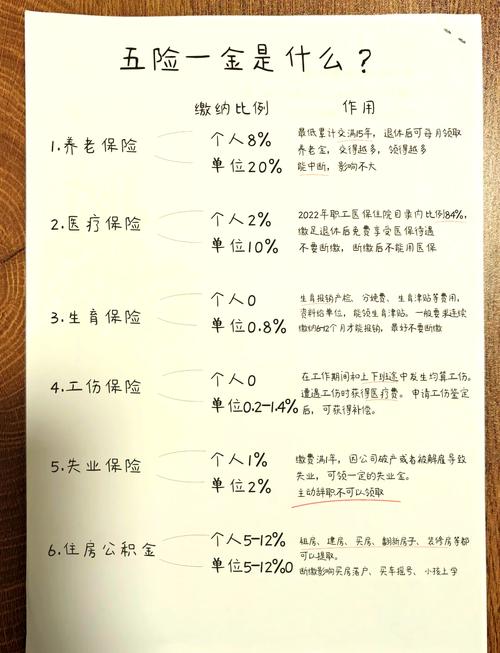 五险一金是什么?
缴纳比例 作用
1.养老保险
个人8%
单位20%
最低累计交满15年,退休后可每月领取
养老金,交得越多,领得越多
能中断,影响不大
2.医疗保险
个人2%
单位10%
2022年职工医保住院目录内比例84%,
缴足退休后免费享受医保待遇
不要断缴,断缴后不能用医保
3.生育保险
个人0
单位0.8%
生育报销产检、分娩费、生育津贴等费用,
资料给单位,能领生育津贴。一般要求连续
缴纳6-12个月才能报销,最好不要断缴
4.工伤保险
个人0
单位0.2-1.4%
在工作期间和上下班途中发生均算工伤。
遭遇工伤时获得医疗费。申请工伤鉴定
后,可获得补偿。
5.失业保险
个人1%
单位2%
缴费满1年,因公司破产或者被解雇导致
失业,可领一定的失业金。
主动辞职不可以领取
6.住房公积金
个人5-12%
单位5-12%0
租房、建房、买房、翻新房子、装修房等都
可以提取。
断缴影响买房落户、买车摇号、小孩上学